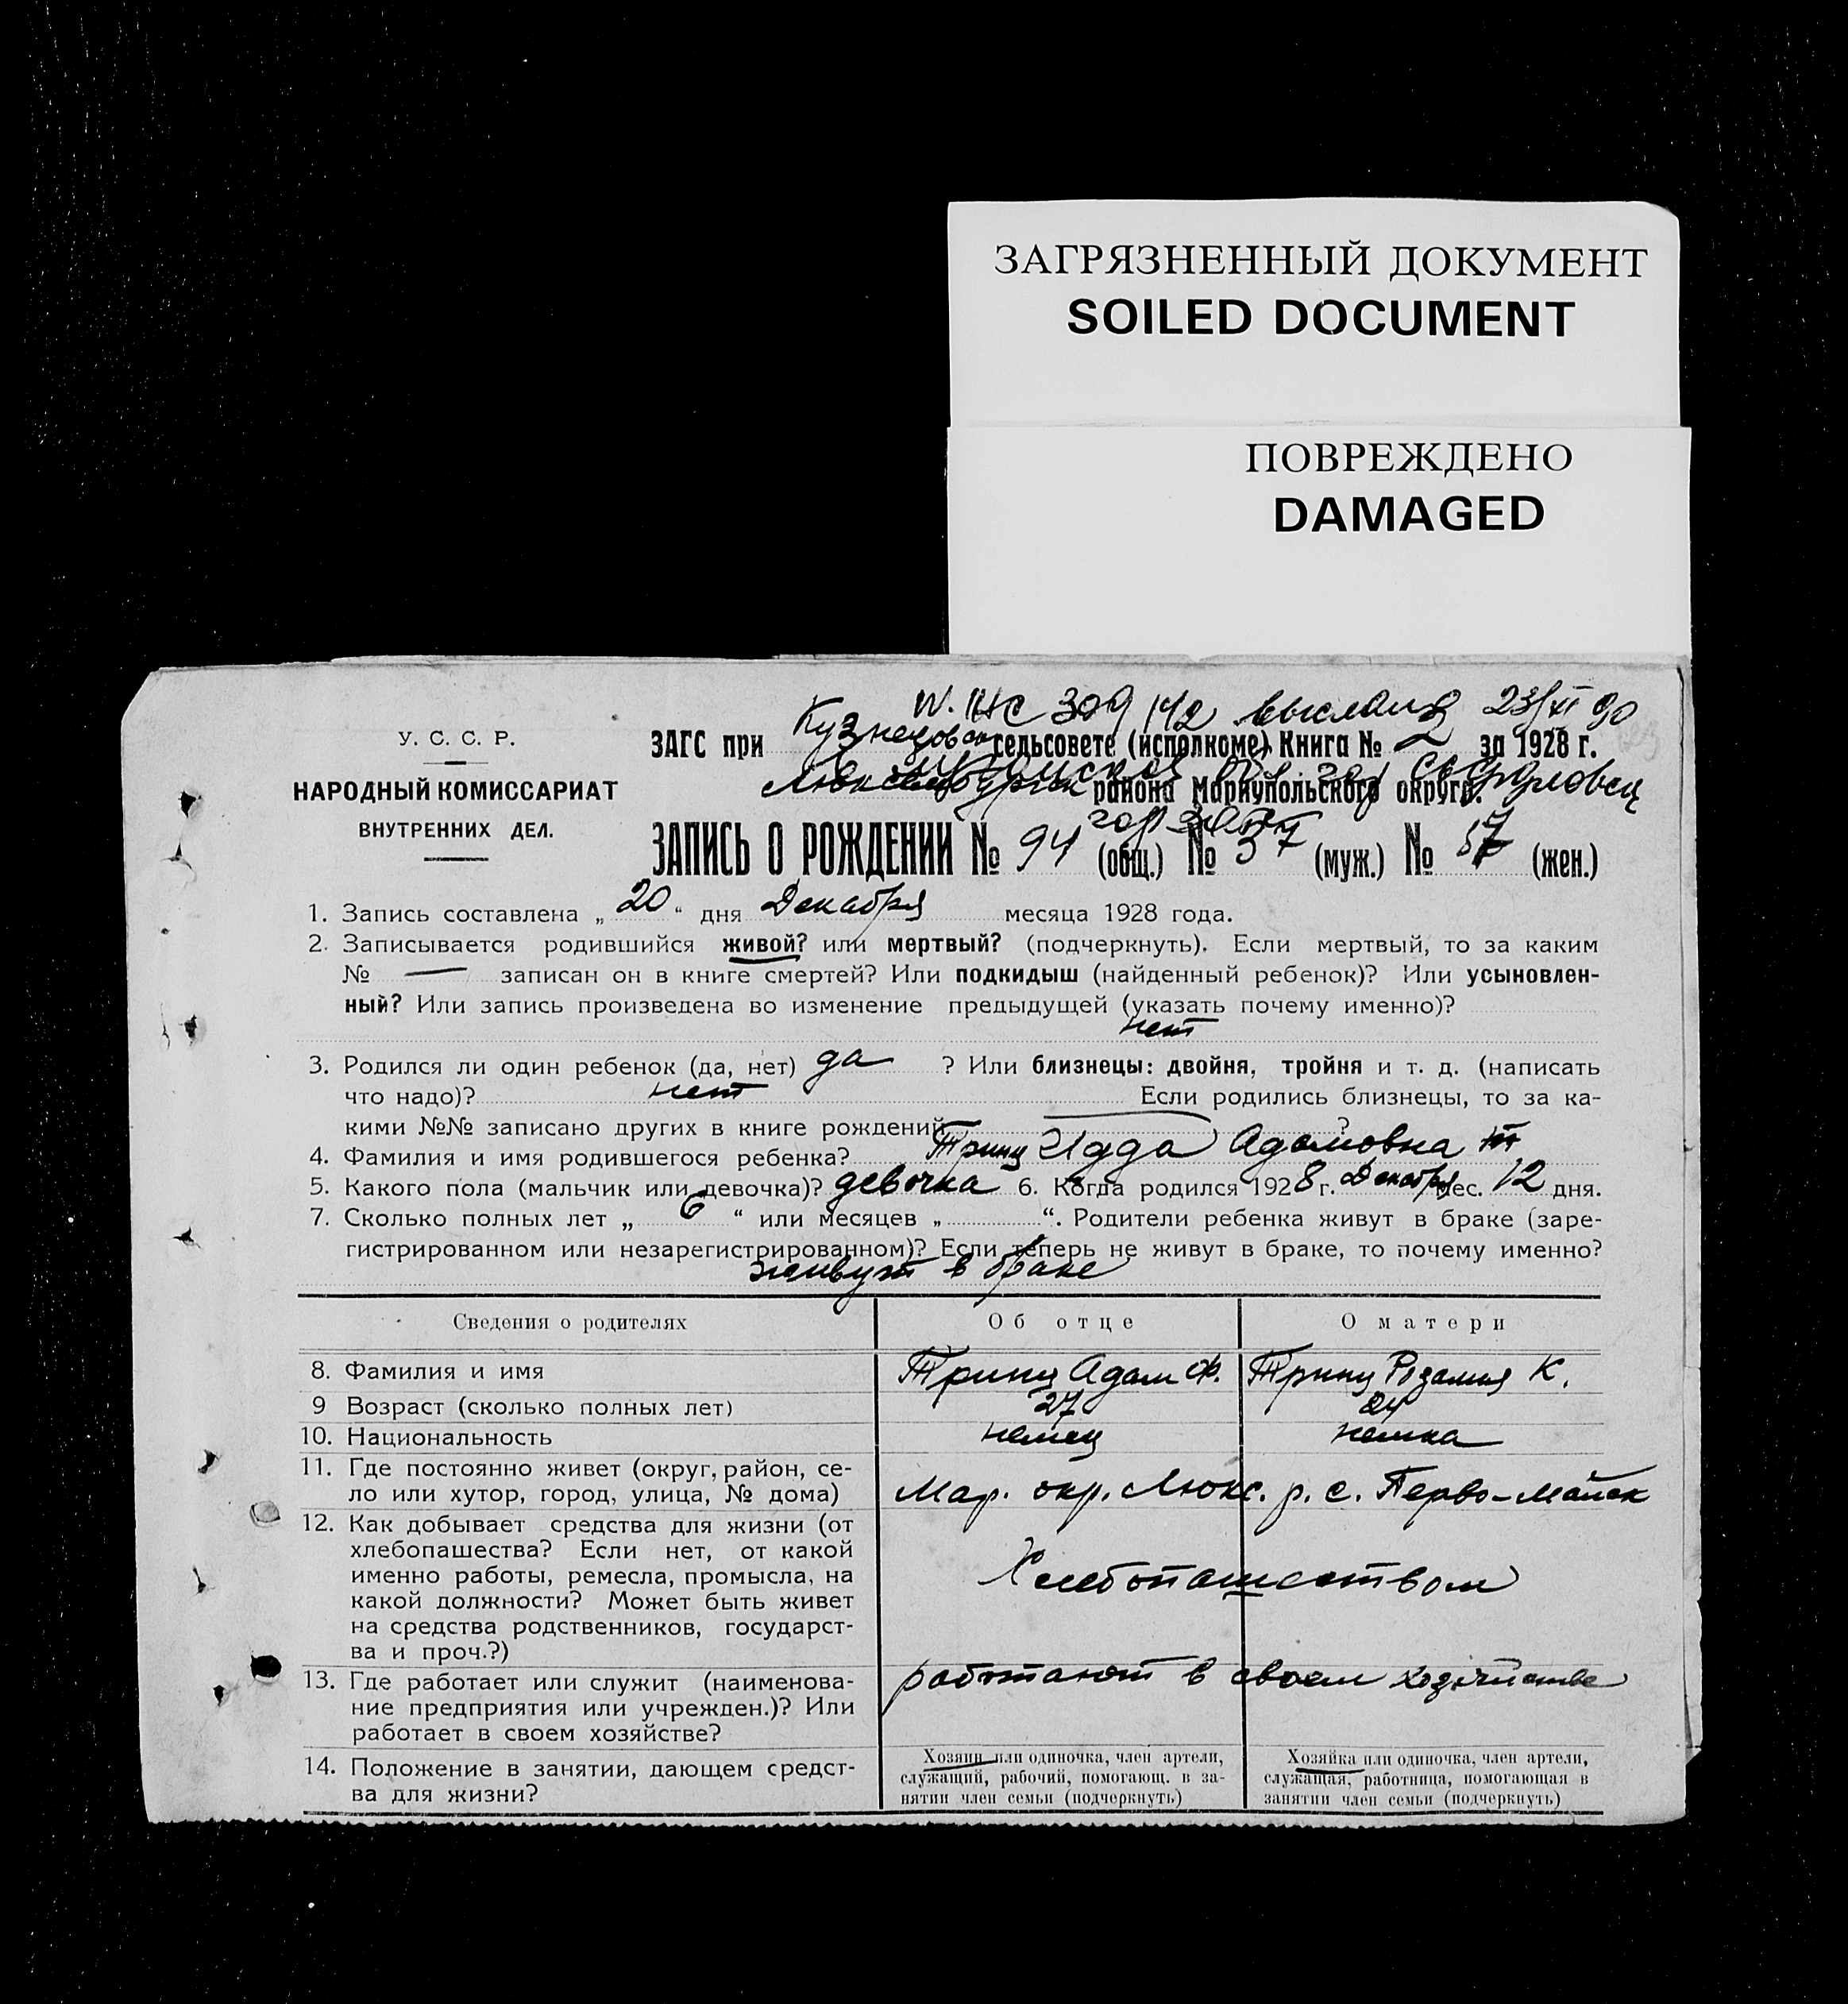 ЗАГРЯЗНЕННЫЙ ДОКУМЕНТ
SOILED DOCUMENT
ПОВРЕЖДЕНО
DAMAGED
309 142 выслано 23/XI 90
У. С. С. Р.
НАРОДНЫЙ КОМИССАРИАТ
ВНУТРЕННИХ ДЕЛ.
ЗАГС при Кузнецовск сельсовете (исполкоме) Книга № 2 за 1928 г.
Люксембургск района Мариупольского округа.
ЗАПИСЬ О РОЖДЕНИИ № 94 (общ.) № 37 (муж.) № 57 (жен.)
1. Запись составлена „ 20 “ дня Декабря месяца 1928 года.
2. Записывается родившийся живой? или мертвый? (подчеркнуть). Если мертвый, то за каким
№ — записан он в книге смертей? Или подкидыш (найденный ребенок)? Или усыновлен-
ный? Или запись произведена во изменение предыдущей (указать почему именно)?
нет
3. Родился ли один ребенок (да, нет) да ? Или близнецы: двойня, тройня и т. д. (написать
что надо)? нет Если родились близнецы, то за ка-
кими №№ записано других в книге рождений ?
4. Фамилия и имя родившегося ребенка? Тринц Идда Адамовна
5. Какого пола (мальчик или девочка)? девочка 6. Когда родился 1928 г. Декабря мес. 12 дня.
7. Сколько полных лет „ 6 “ или месяцев „ “. Родители ребенка живут в браке (заре-
гистрированном или незарегистрированном)? Если теперь не живут в браке, то почему именно?
живут в браке
Сведения о родителях Об отце О матери
8. Фамилия и имя Тринц Адам Ф. Тринц Розалия К.
9 Возраст (сколько полных лет) 27 24
10. Национальность немец немка
11. Где постоянно живет (округ, район, се-
ло или хутор, город, улица, № дома) Мар. окр. Люкс. р. с. Перво-Майск
12. Как добывает средства для жизни (от
хлебопашества? Если нет, от какой
именно работы, ремесла, промысла, на
какой должности? Может быть живет
на средства родственников, государст-
ва и проч.?)
Хлебопашеством
13. Где работает или служит (наименова-
ние предприятия или учрежден.)? Или
работает в своем хозяйстве?
работают в своем хозяйстве
14. Положение в занятии, дающем средст-
ва для жизни?
Хозяин или одиночка, член артели,
служащий, рабочий, помогающ. в за-
нятии член семьи (подчеркнуть)
Хозяйка или одиночка, член артели,
служащая, работница, помогающая в
занятии член семьи (подчеркнуть)